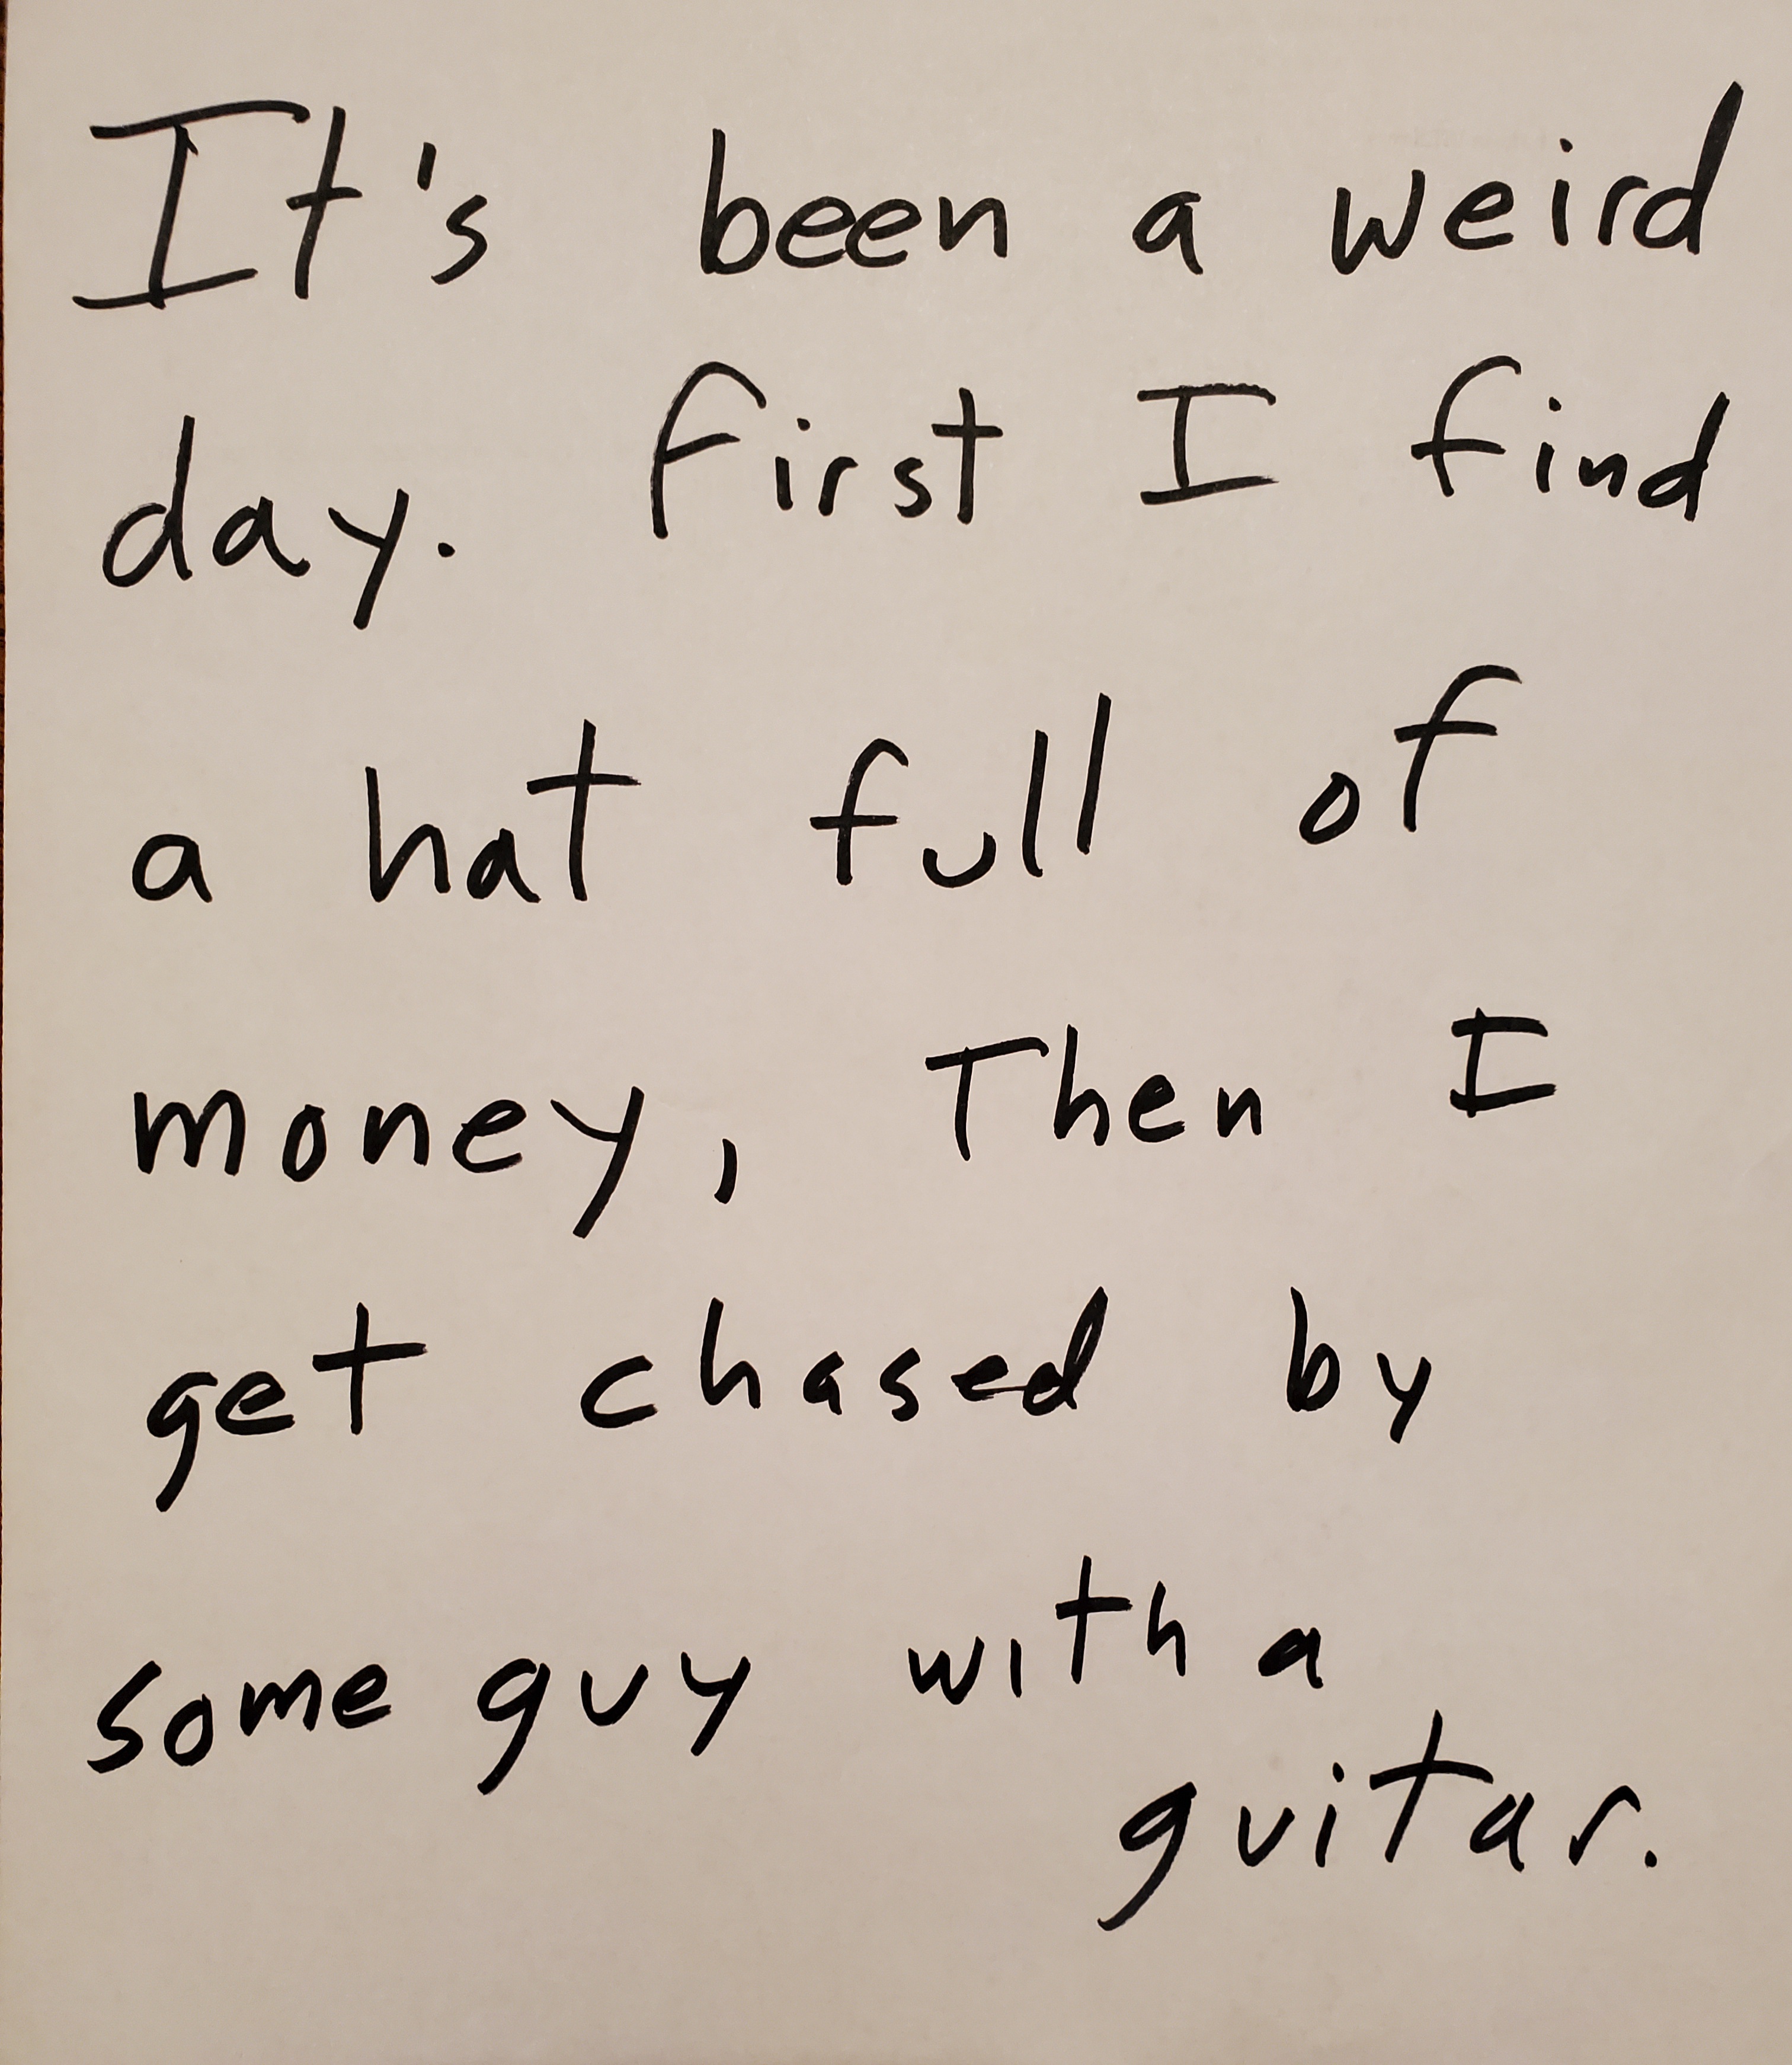 It's been a weird
day. First I find
a hat full of
money, Then I
get chased by
some guy with a
guitar.